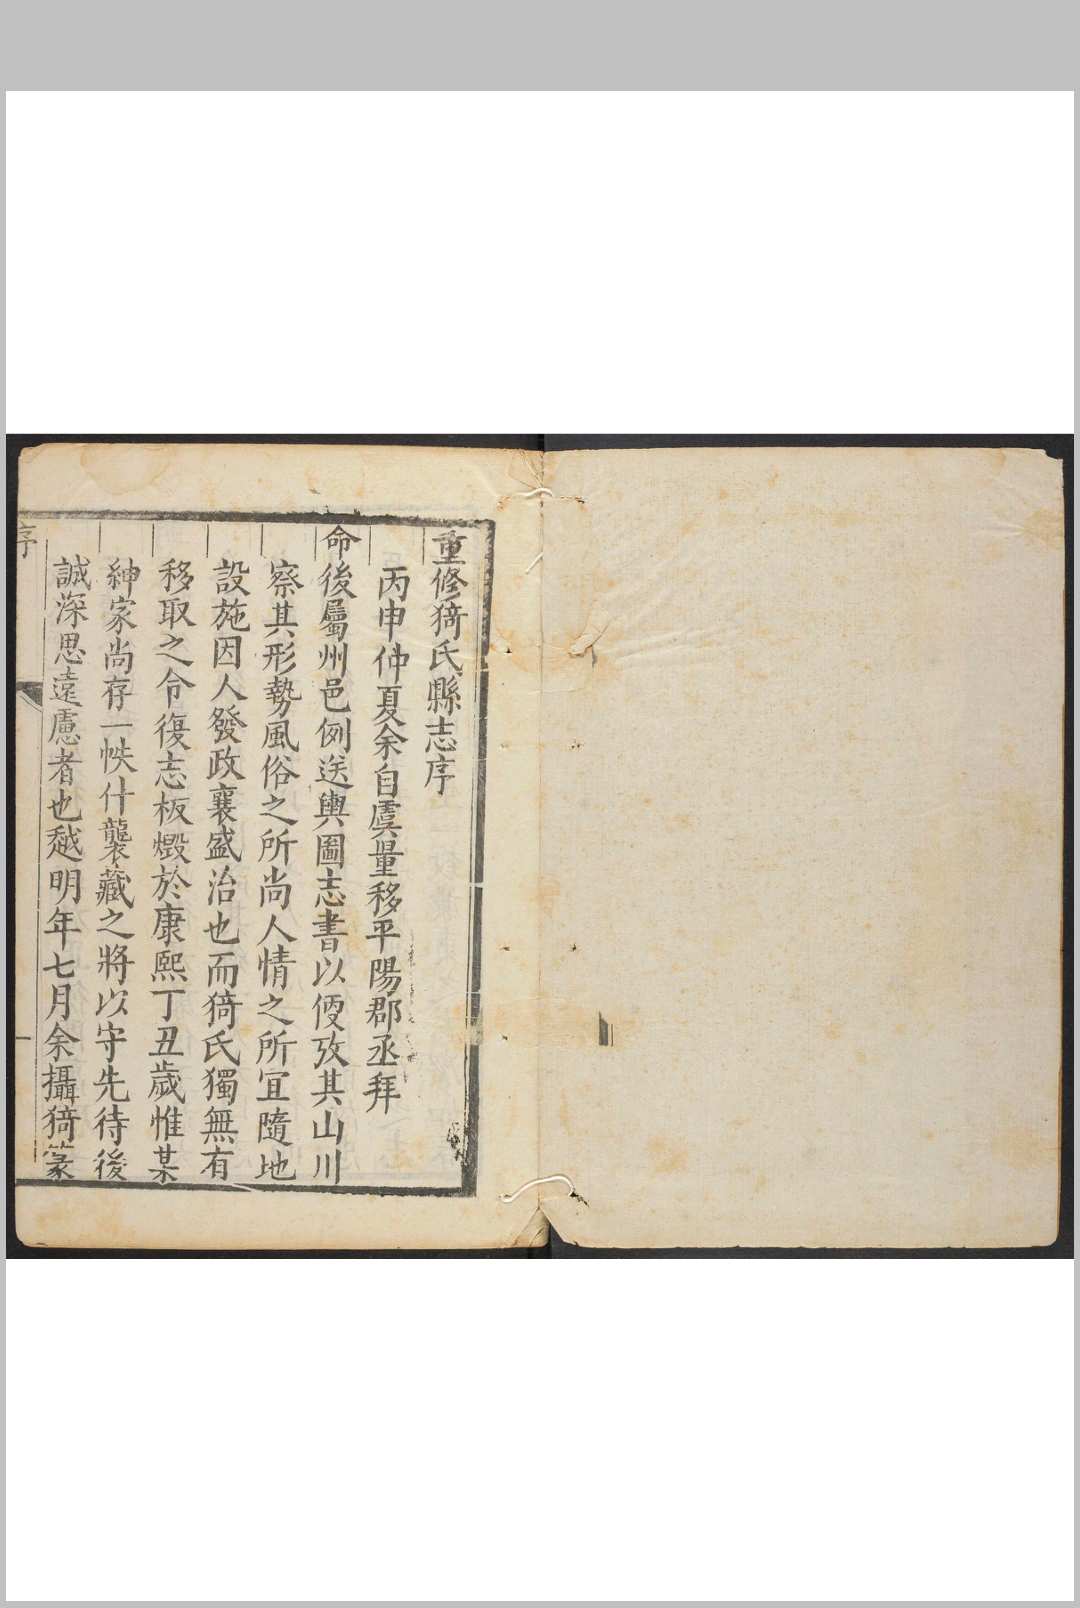 重修猗氏縣志序
丙申仲夏余自虞量移平陽郡丞拜
命後屬州邑例送輿圖志書以便攷其山川
察其形勢風俗之所尚人情之所宜隨地
設施因人發政襄盛治也而猗氏獨無有
移取之令復志板燬於康熙丁丑歲惟某
紳家尚存一帙什襲藏之將以守先待後
誠深思遠慮者也越明年七月余攝猗篆
序